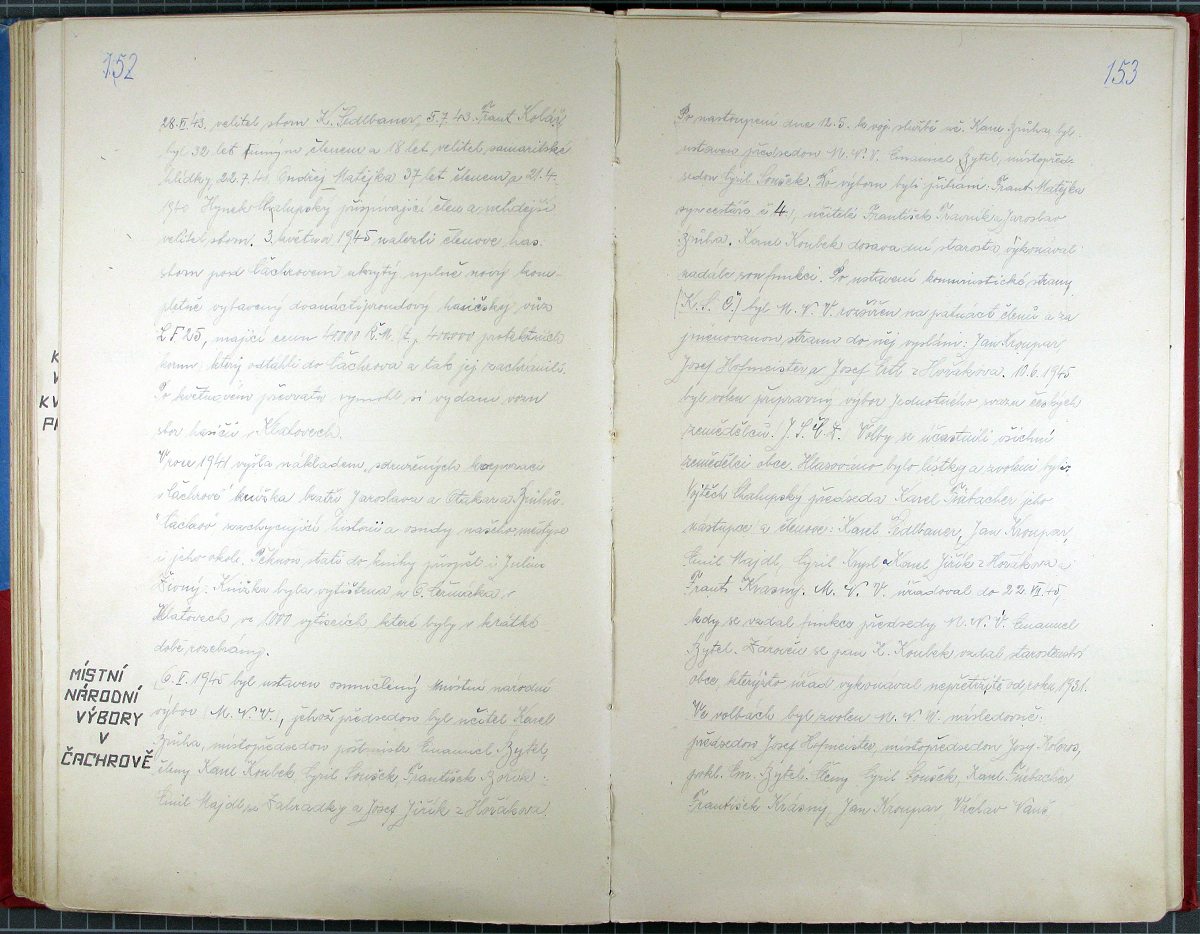 152
28.VI.43. velitel sboru K. Sedlbauer, 5.7.43. Frant. Kolář,
byl 32 let činným členem a 18 let velitel samaritské
hlídky, 22.7.41 Ondřej Matějka 37 let členem a 21.4.
1940 Hynek Chalupský přispívající člen a někdejší
velitel sboru. 3. května 1945 nalezli členové has.
sboru pod Čáchrovem ukrytý úplně nový kom-
pletně vybavený dvanáctiproudový hasičský vůz
LF 25, mající cenu 40.000 R.M. (t.j. 400.000 protektorátních
korun, který odtáhli do Čáchrova a tak jej zachránili.
Po květnovém převratu vymohl si vydání vozu
sbor hasičů v Klatovech.
V roce 1941 vyšla nákladem „sdružených korporací
v Čáchrově" knížka bratří Jaroslava a Otakara Zrůhů
"Čáchrov" zachycující historii a osudy našeho městyse
i jeho okolí. Pěknou stať do knihy přispěl i Julius
Knížka byla vytištěna u Čermáka v
Klatovech ve 1000 výtiscích, které byly v krátké
době rozebrány.
MÍSTNÍ
NÁRODNÍ
VÝBORY
V
ČACHROVĚ
6.V.1945 byl ustaven osmičlenný místní národní
výbor (M.N.V.), jehož předsedou byl učitel Karel
Zrůha, místopředsedou poštmistr Emanuel Bytel,
členy Karel Koubek, Cyril Soušek, František
Emil Majdl ze Zahrádky a Josef Jiřík z Hořákova.
K
V
KV
PŘ
153
Po nastoupení dne 12.5. k voj. službě uč. Karel Zrůha byl
ustaven předsedou M.N.V. Emanuel Bytel, místopřed-
sedou Cyril Soušek. Do výboru byli přibráni: Frant. Matějka
syn z čís. 4., učitelé František Trávník a Jaroslav
Zrůha. Karel Koubek dosavadní starosta vykonával
nadále svou funkci. Po ustavení komunistické strany
(K.S.Č.) byl M.N.V. rozšířen na patnáct členů a za
jmenovanou stranu do něj vysláni: Jan Kroupar
Josef Hofmeister a Josef Ertl z Hořákova. 10.6.1945
byl volen přípravný výbor Jednotného svazu českých
zemědělců (J.S.Č.Z.) Volby se účastnili všichni
zemědělci obce. Hlasováno bylo lístky a zvoleni byli:
Vojtěch Chalupský předseda, Karel Fürbacher jeho
nástupce a členové: Karel Sedlbauer, Jan Kroupar,
Emil Majdl, Cyril Krysl a Karel Jiřík z Hořákova a
Frant. Krásný. M.N.V. úřadoval do 22.VII.45,
kdy se vzdal funkce předsedy M.N.V. Emanuel
Bytel. Zároveň se pan K. Koubek vzdal starostenství
obce, kterýžto úřad vykonával nepřetržitě od roku 1931.
Ve volbách byl zvolen M.N.V. následovně:
předsedou Josef Hofmeister, místopředsedou Josef Kolros,
pokl. Em. Bytel. Členy Cyril Soušek, Karel Fürbacher
František Krásný, Jan Kroupar, Václav Váňě